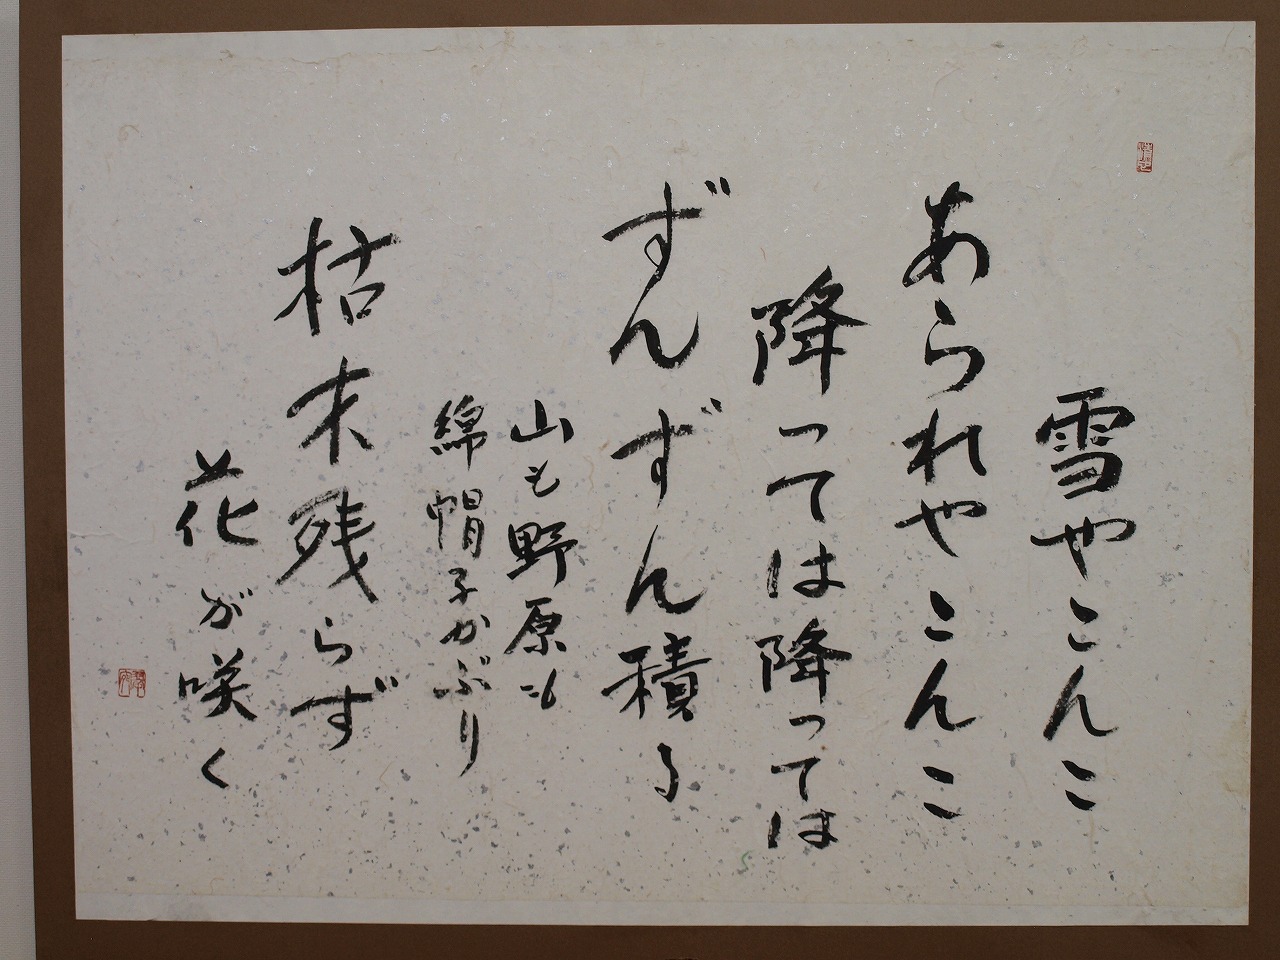 雪やこんこ
あられやこんこ
降っては降っては
ずんずん積る
山も野原も
綿帽子かぶり
枯木残らず
花が咲く